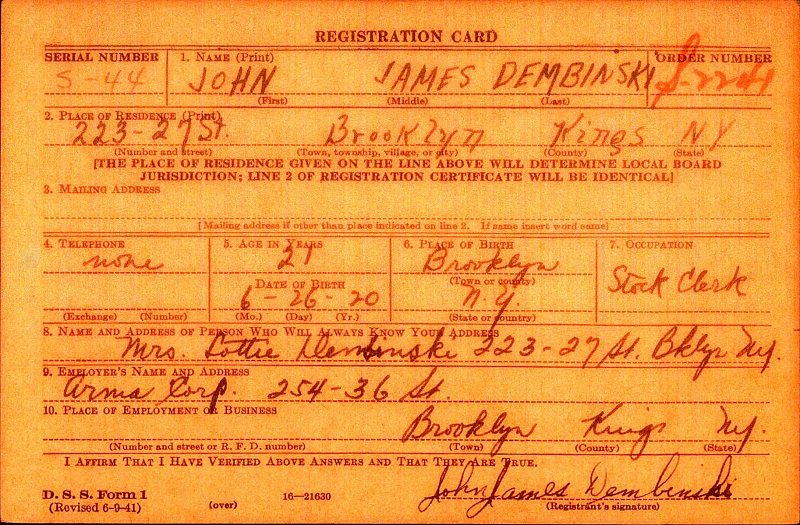 REGISTRATION CARD
SERIAL NUMBER 1. NAME (Print) ORDER NUMBER
S-44 JOHN JAMES DEMBINSKI S-2241
(First) (Middle) (Last)
2. PLACE OF RESIDENCE (Print)
223-27 St. Brooklyn Kings NY
(Number and street) (Town, township, village, or city) (County) (State)
[THE PLACE OF RESIDENCE GIVEN ON THE LINE ABOVE WILL DETERMINE LOCAL BOARD
JURISDICTION; LINE 2 OF REGISTRATION CERTIFICATE WILL BE IDENTICAL]
3. MAILING ADDRESS
[Mailing address if other than place indicated on line 2. If same insert word same]
4. TELEPHONE 5. AGE IN YEARS 6. PLACE OF BIRTH 7. OCCUPATION
none 21 Brooklyn
(Town or county)
DATE OF BIRTH Stock Clerk
6-26-20 N.Y.
(Exchange) (Number) (Mo.) (Day) (Yr.) (State or country)
8. NAME AND ADDRESS OF PERSON WHO WILL ALWAYS KNOW YOUR ADDRESS
Mrs. Lottie Dembinski 223-27 St. Bklyn NY.
9. EMPLOYER'S NAME AND ADDRESS
Arma Corp. 254-36 St.
10. PLACE OF EMPLOYMENT OR BUSINESS
Brooklyn Kings NY.
(Number and street or R. F. D. number) (Town) (County) (State)
I AFFIRM THAT I HAVE VERIFIED ABOVE ANSWERS AND THAT THEY ARE TRUE.
D. S. S. Form 1 John James Dembinski
(Revised 6-9-41) (over) 16—21630 (Registrant's signature)